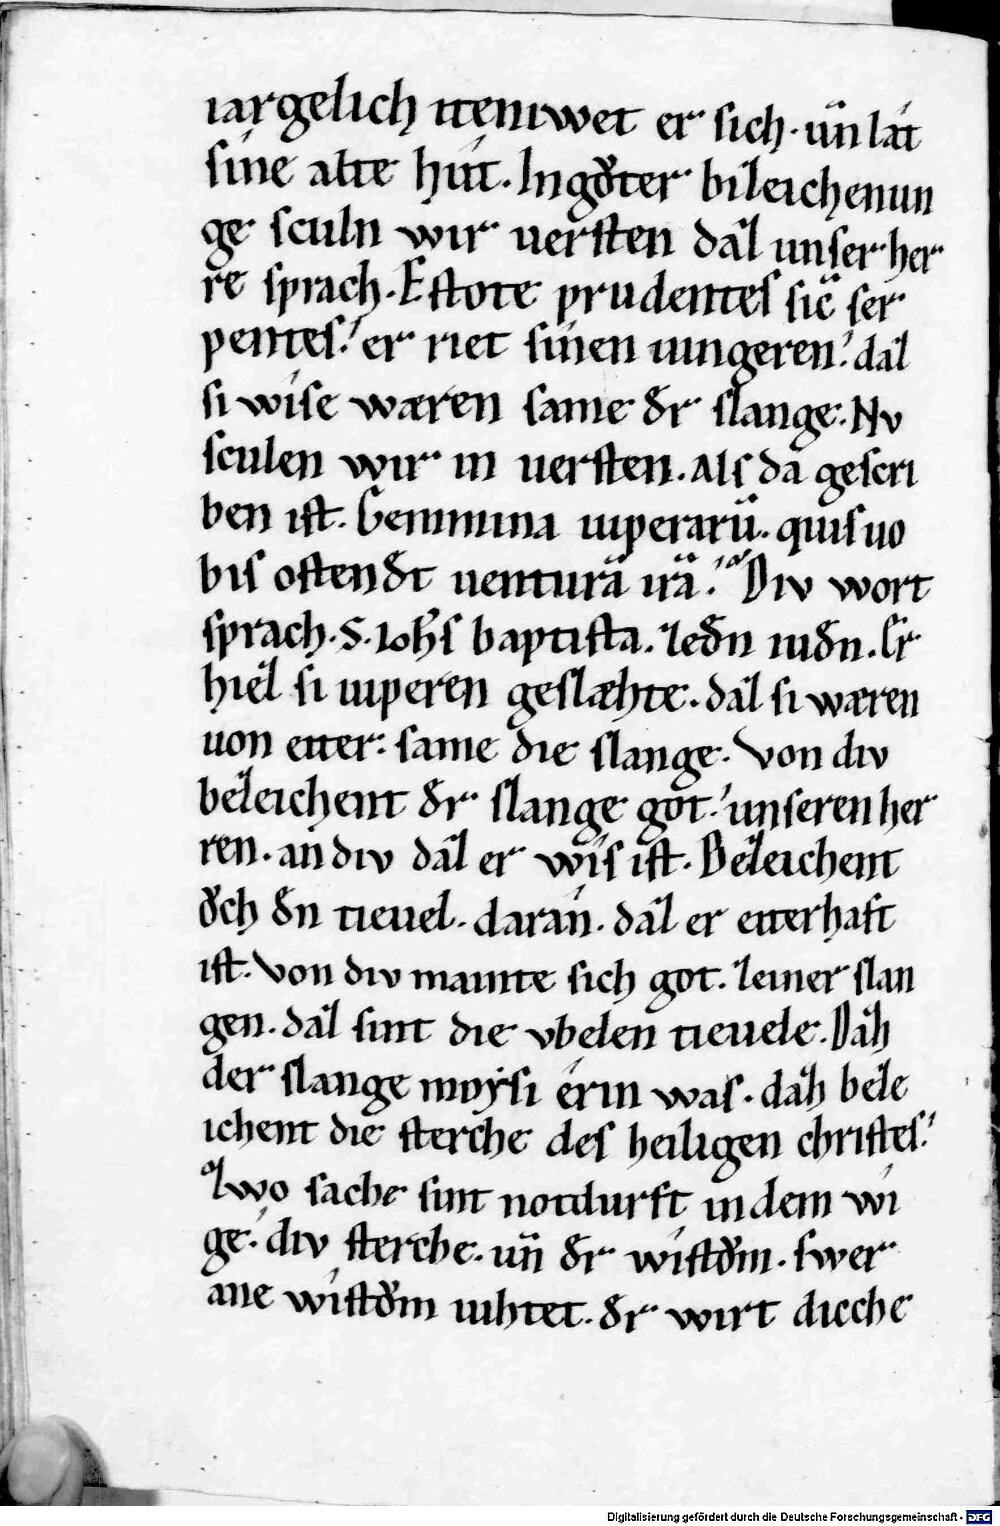 iargelich iteniwet er sich. un̄ lát
sine alte hút. In gůter bizeichenun
ge sculn wir uersten daz unser her
re sprach. Estote prudentes sic̄ ser
pentes. er riet sinen iungeren. daz
si wise wæren same dr̄ slange. Nv
sculen wir in uersten. als da gescri
ben ist. Gemmina uiperarū. quis uo
bis ostendt̄ uenturā irā. Div wort
sprach. S. ioh̄s baptista. zedn̄ iudn̄. Er
hiez si uiperen geslæhte. daz si wæren
uon eiter. same die slange. Von div
bezeichent dr̄ slange got. unseren her
ren. an div daz er wis ist. Bezeichent
ǒch dn̄ tieuel. daran. daz er eiterhaft
ist. Von div mainte sich got. zeiner slan
gen. daz sint die vbelen tieuele. Daz
der slange moẏsi érin was. daz beze
ichent die sterche des heiligen christes.
Zwo sache sint notdurft in dem wi
ge. div sterche. un̄ dr̄ wistǒm. swer
ane wistǒm uihtet. dr̄ wirt dicche
Digitalisierung gefördert durch die Deutsche Forschungsgemeinschaft - DFG